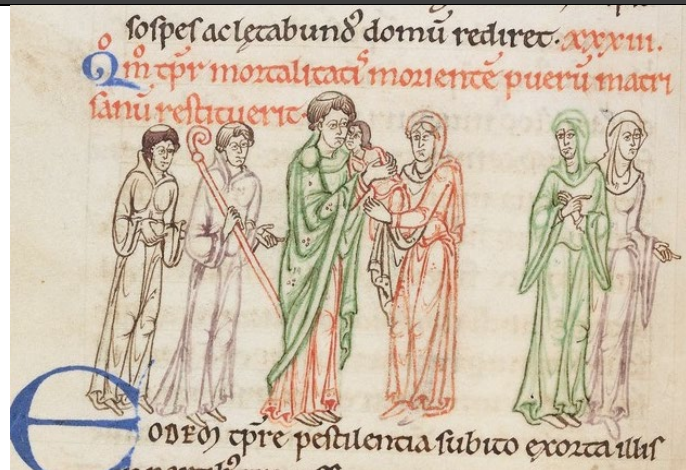 sospes ac lętabund' domū rediret. xxxiii.
Qm̊ tp̄r mortalitatis morientē puerū matri
sanū restituerit.
EODEM tp̄re pestilentia subito exorta illis